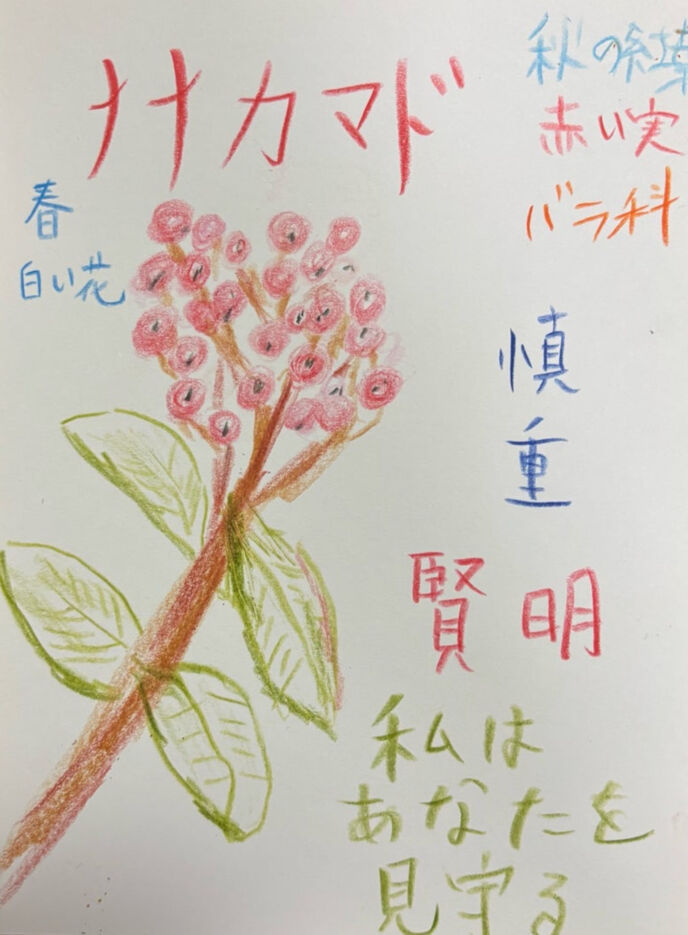 ナナカマド
秋の紅葉
赤い実
バラ科
春
白い花
慎重
賢明
私は
あなたを
見守る